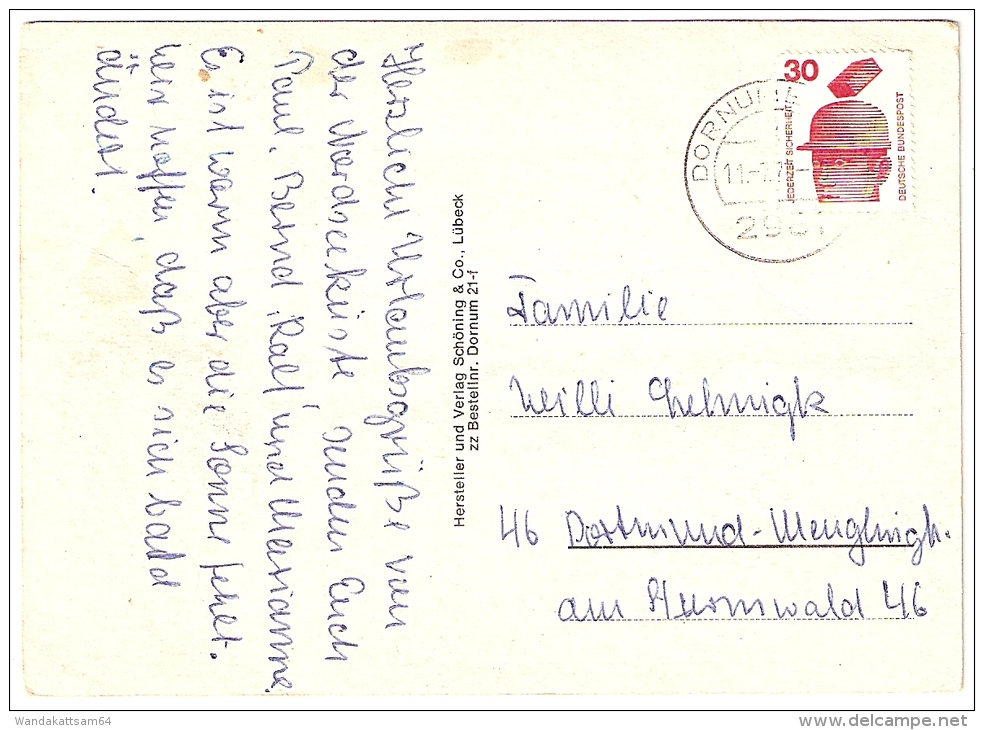 Herzliche Urlaubsgrüße von
der Nordseeküste senden Euch
Paul, Bernd, Ralf und Marianne.
Es ist warm aber die Sonne fehlt.
wir hoffen, daß es sich bald
ändert.
Hersteller und Verlag Schöning & Co., Lübeck
zz Bestellnr. Dornum 21-f
30
JEDERZEIT SICHERHEIT
DEUTSCHE BUNDESPOST
DORNUM
11.-7.7
Familie
Willi
46 Dortmund-
am Sturmwald 46
Wandakattsam64
www.delcampe.net